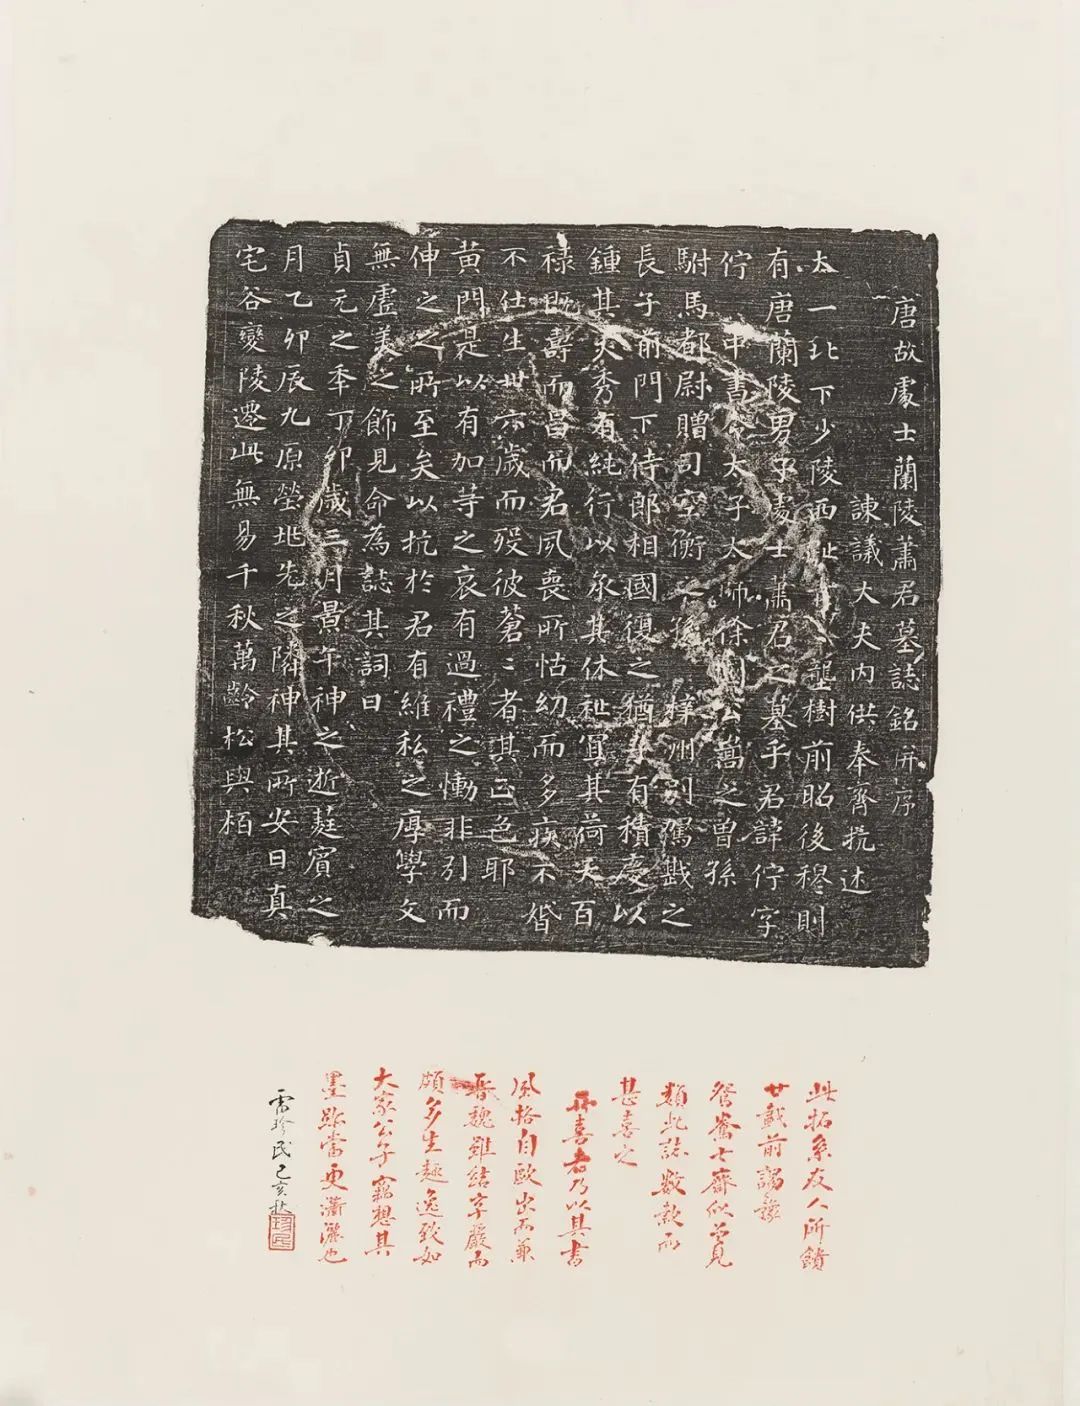 唐故處士蘭陵蕭君墓誌銘并序
諫議大夫內供奉齊抗述
太一北下少陵西壟樹前昭後穆則
有唐蘭陵男子處士蕭君之墓乎君諱佇字
佇中書令太子太師徐國公嵩之曾孫
駙馬都尉贈司空衡之孫梓州別駕戡之
長子前門下侍郎相國復之猶子有積慶以
鍾其夭秀有純行以承其休祉冝其荷天百
祿既壽而昌而君夙喪所怙幼而多疾不婚
不仕生世六歲而歿彼蒼〻者其正色耶
黃門是以有加等之哀有過禮之慟非引而
伸之之所至矣以抗於君有維私之厚學文
無虛美之飾見命為誌其詞曰
貞元之年丁卯歲三月景午神之逝蕤賓之
月乙卯辰九原塋兆先之隣神其所安曰真
宅谷變陵遷此無易千秋萬齡松與栢
此拓系友人所饋
廿載前謁豫
鴛鴦七齋似曾見
類此誌數款而
甚喜之
喜者乃以其書
風格自歐出而兼
晋魏雖結字嚴而
頗多生趣逸致如
大家公子竊想其
墨跡當更瀟灑也
雷珍民己亥秋